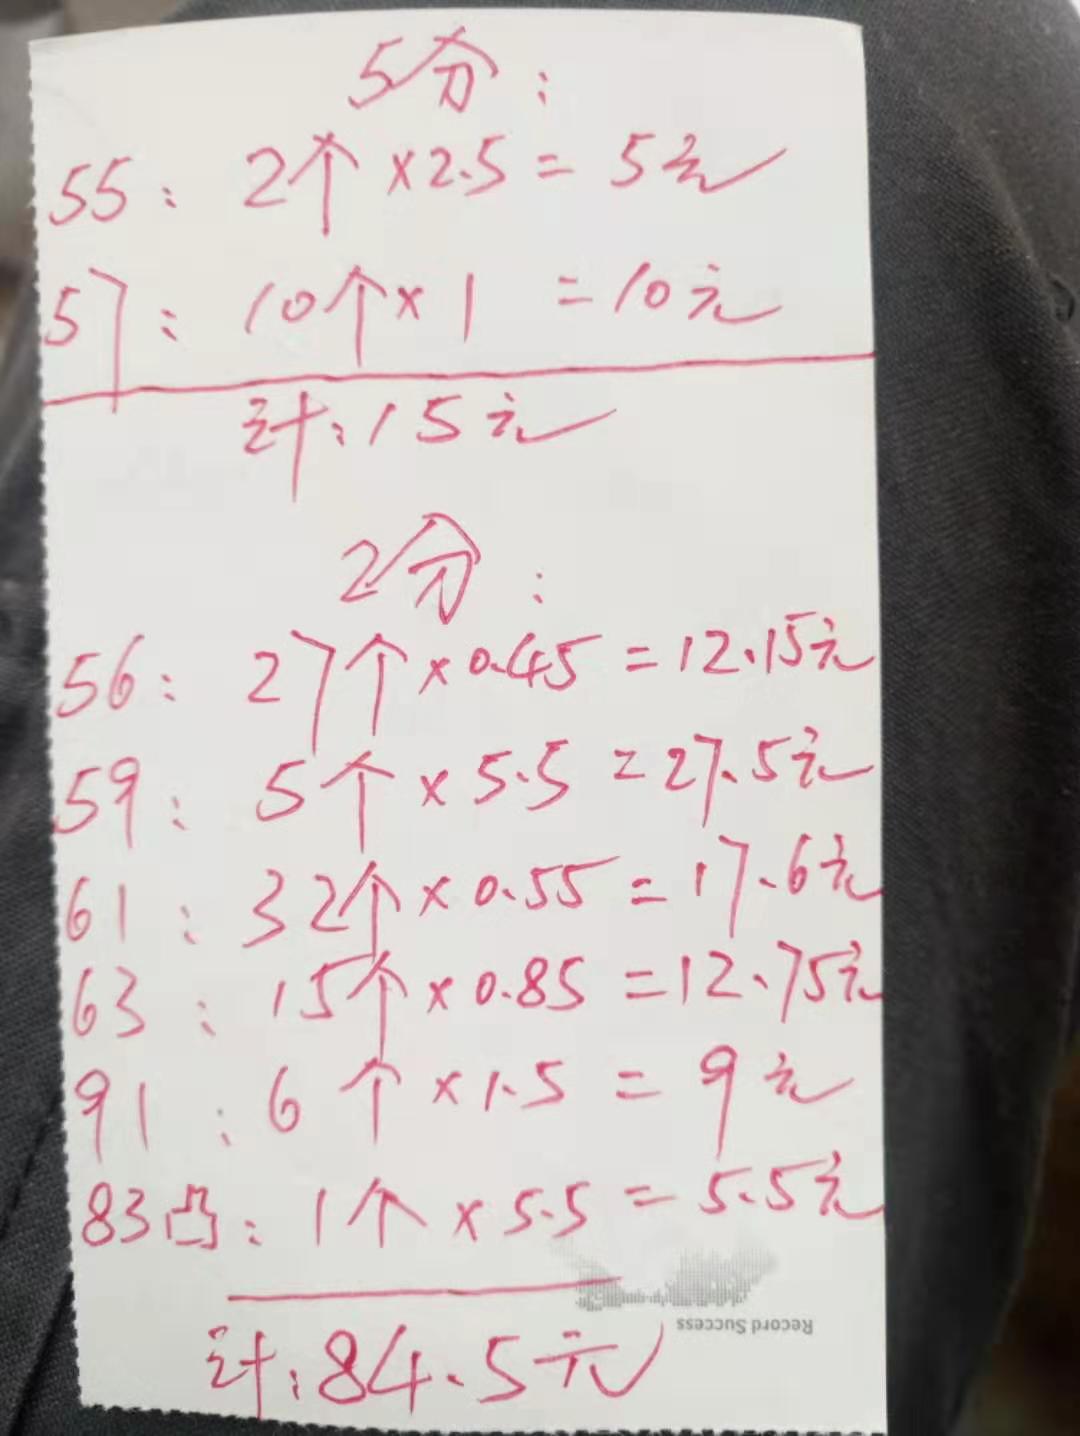 5分：
55：2个×2.5=5元
57：10个×1=10元
计：15元
2分：
56：27个×0.45=12.15元
59：5个×5.5=27.5元
61：32个×0.55=17.6元
63：15个×0.85=12.75元
91：6个×1.5=9元
83凸：1个×5.5=5.5元
Record Success
计：84.5元